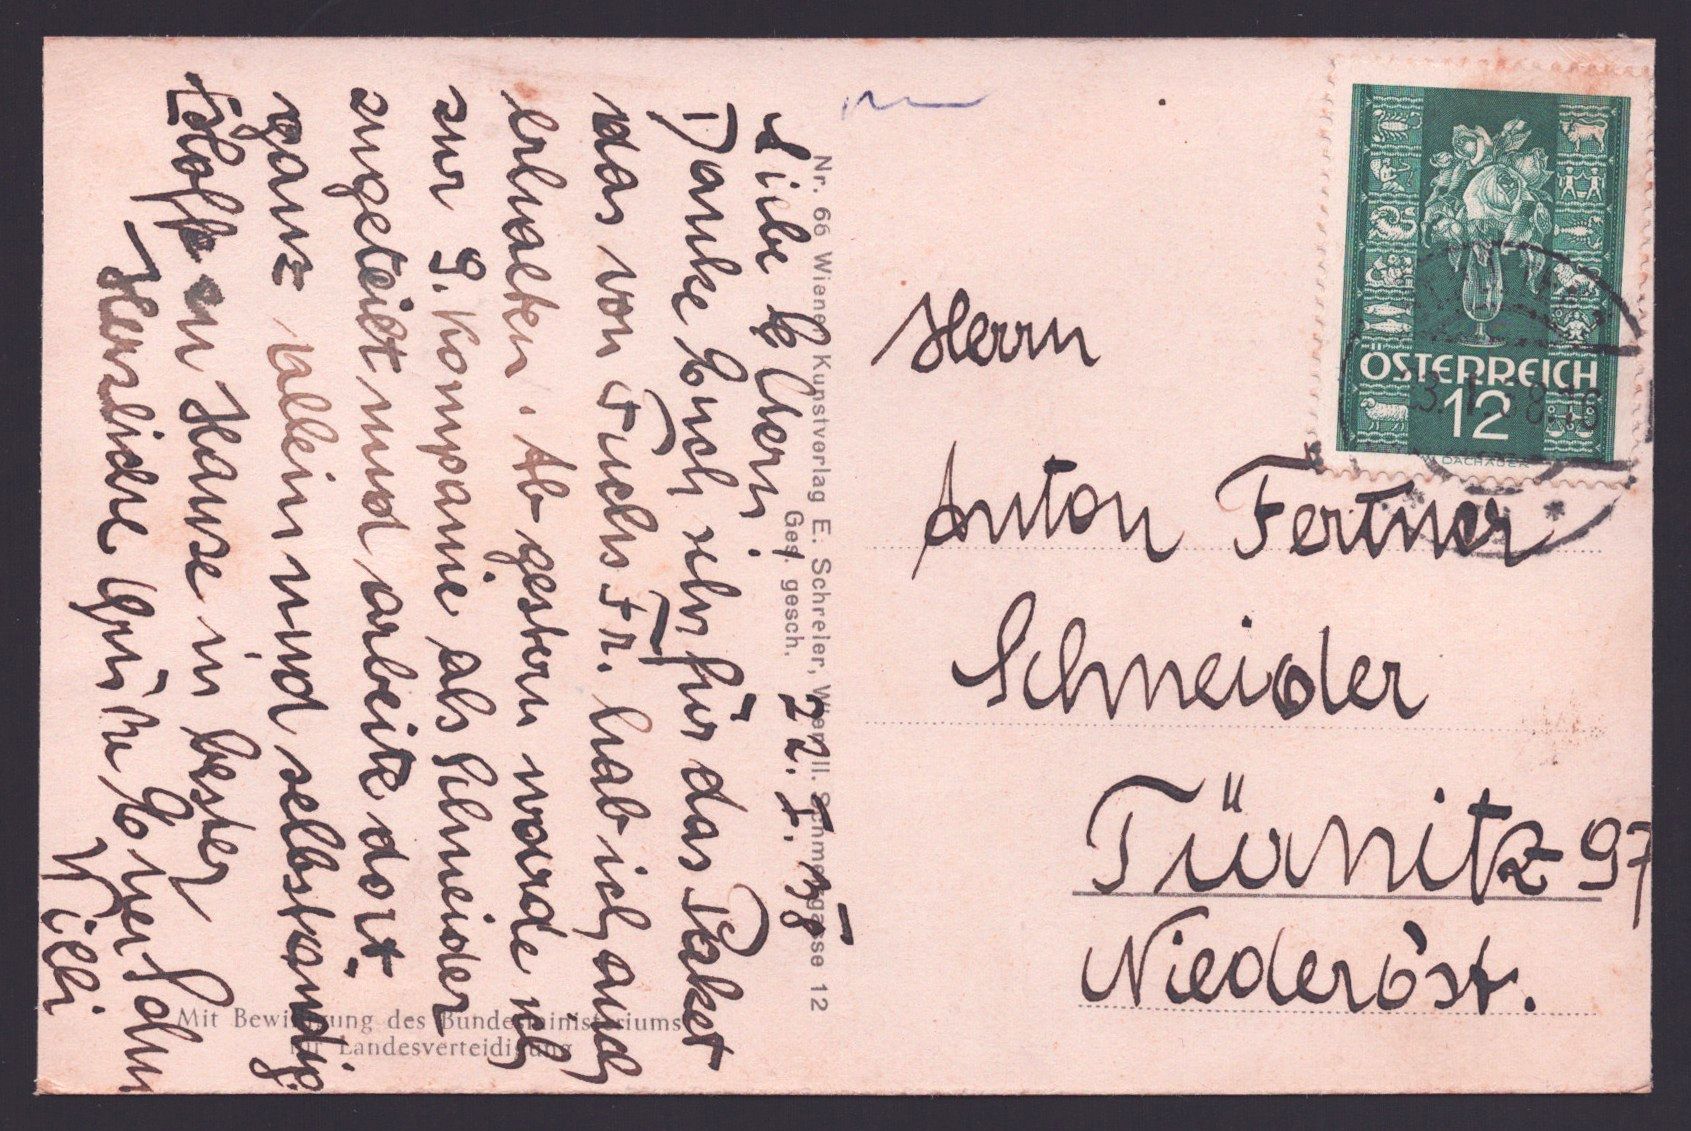 Liebe Eltern 22. I. 38
Danke Euch sehr für das Paket
das von Fuchs Fr. hab ich auch
erhalten. Ab gestern wurde ich
zur 9. Kompanie als Schneider
zugeteilt und arbeite dort
ganz allein und selbständig.
Hoffe zu Hause in bester
Herzliche Grüße Euer Sohn
Willi
Nr. 66 Wiener Kunstverlag E. Schreier, Wien II. Schmelzgasse 12
Ges. gesch.
Mit Bewilligung des Bundesministeriums
für Landesverteidigung
ÖSTERREICH
12
DACHAUER
Herrn
Anton Fertner
Schneider
Türnitz 97
Niederöst.